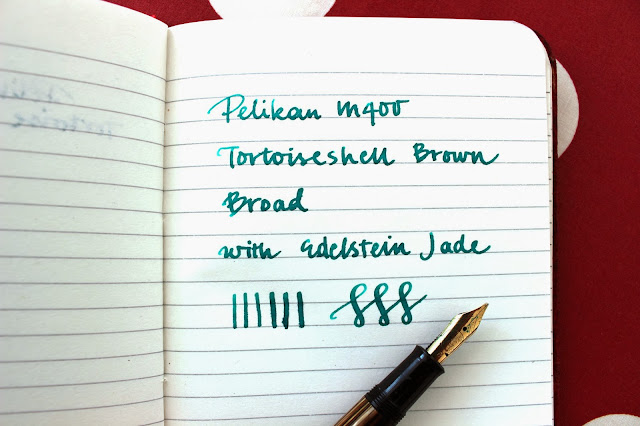 Pelikan M400
Tortoiseshell Brown
Broad
with Edelstein Jade